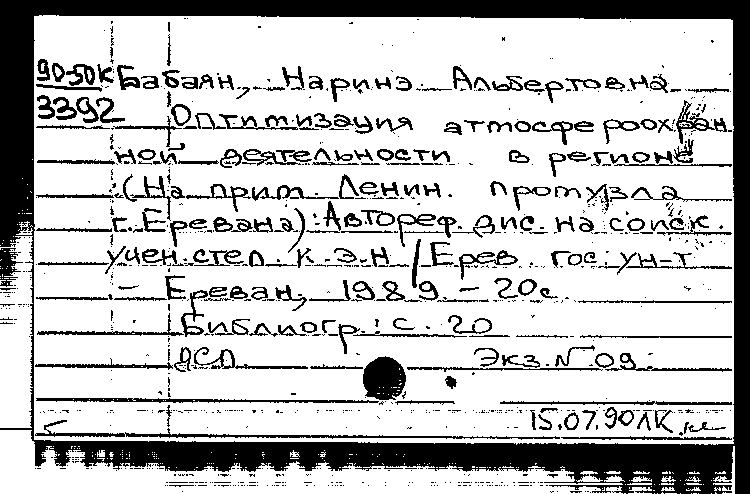 90-50К Бабаян, Наринэ Альбертовна
3392 Оптимизация атмосфероохран
ной деятельности в регионе
(На прим. Ленин. промузла
г. Еревана): Автореф. дис. на соиск.
учен. степ. к.э.н / Ерев. гос. ун-т
– Ереван, 1989 – 20с.
Библиогр.: с. 20
ДСП Экз. № 09.
15.07.90 ЛК